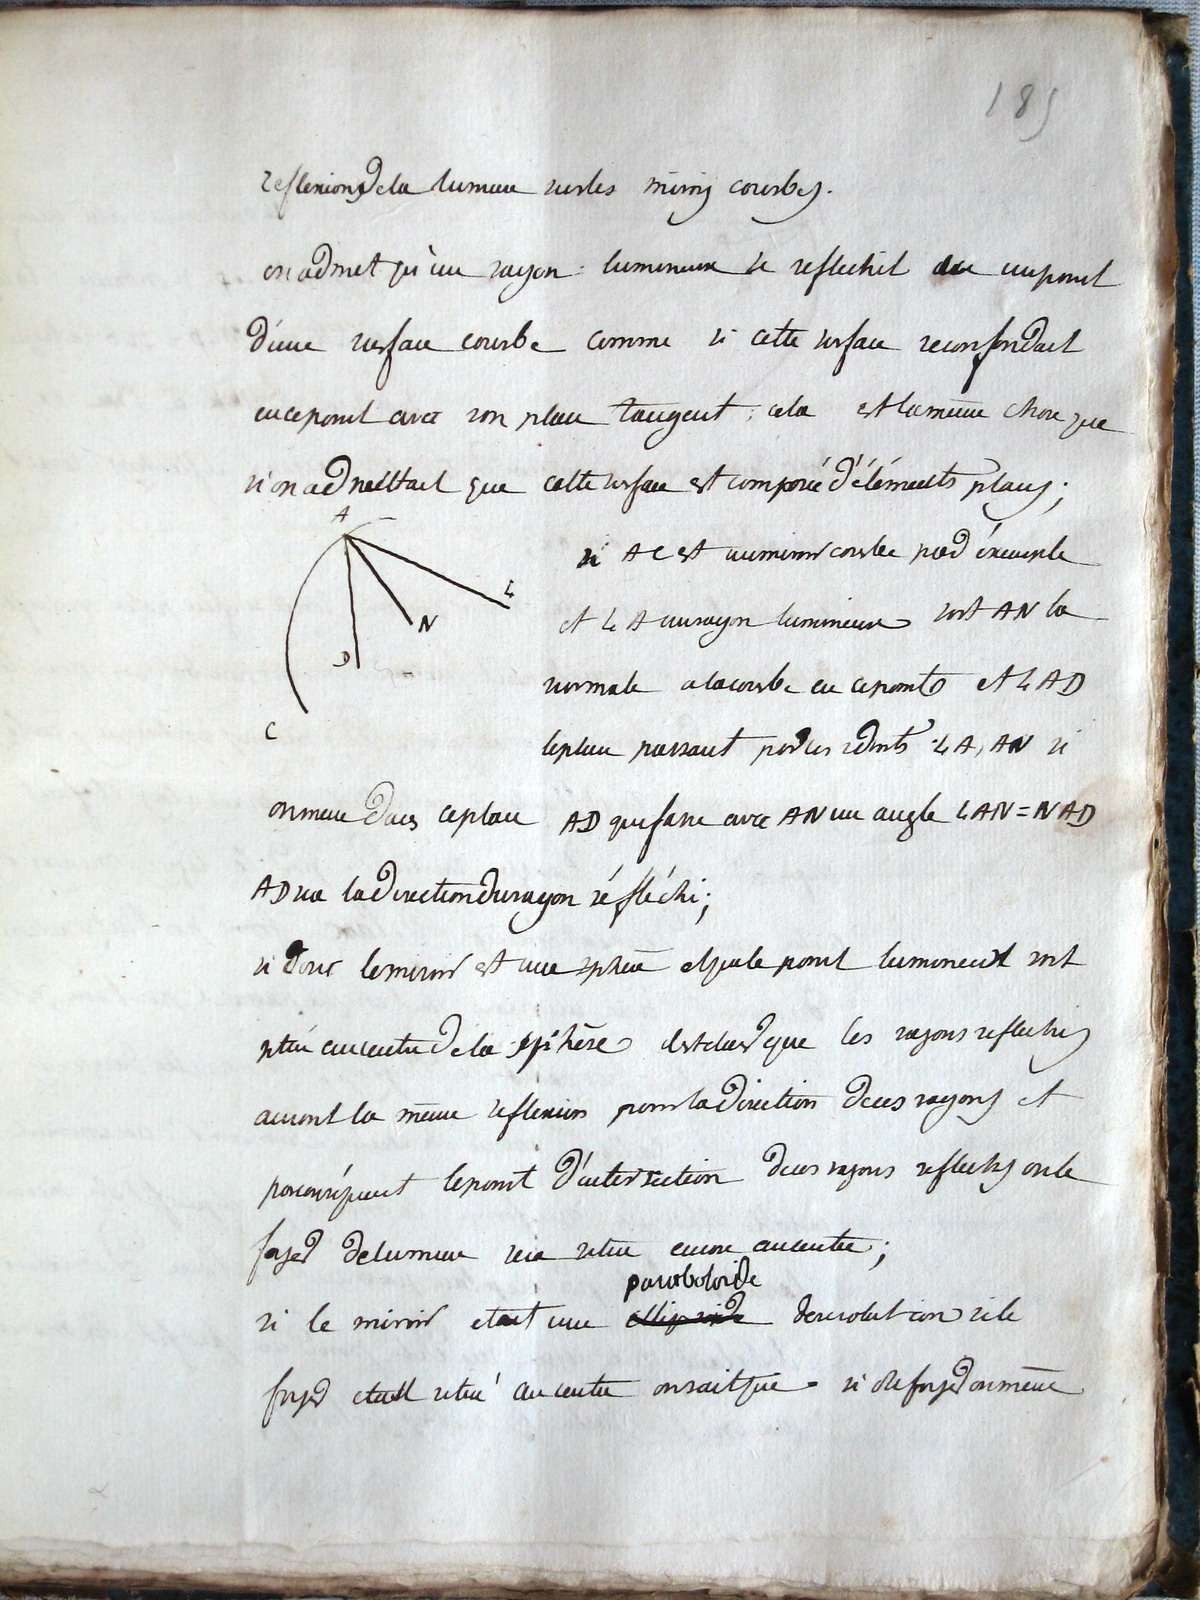 185
reflexion de la lumiere sur les miroirs courbes.
on admet qu'un rayon lumineux se reflechit en un point
d'une surface courbe comme si cette surface se confondait
en ce point avec son plan tangent; cela est la même chose que
si on admettait que cette surface est composée d'éléments plans;
si AC est un miroir courbe par éxemple
et LA un rayon lumineux soit AN la
normale a la courbe en ce point et LAD
le plan passant par les droites LA, AN si
on mene dans ce plan AD qui fasse avec AN un angle LAN = NAD
AD sera la direction du rayon réfléchi;
si donc le miroir est une sphere et que le point lumineux soit
situé au centre de la sphère il est clair que les rayons reflechis
auront la même direction de ces rayons et
par conséquent le point d'intersection de ces rayons reflechis ou le
foyer de lumiere sera situé encore au centre;
paraboloide
si le miroir etait une ellipsoide de revolution si le
foyer etait situé au centre on sait que si du foyer on mene
A
L
N
D
C